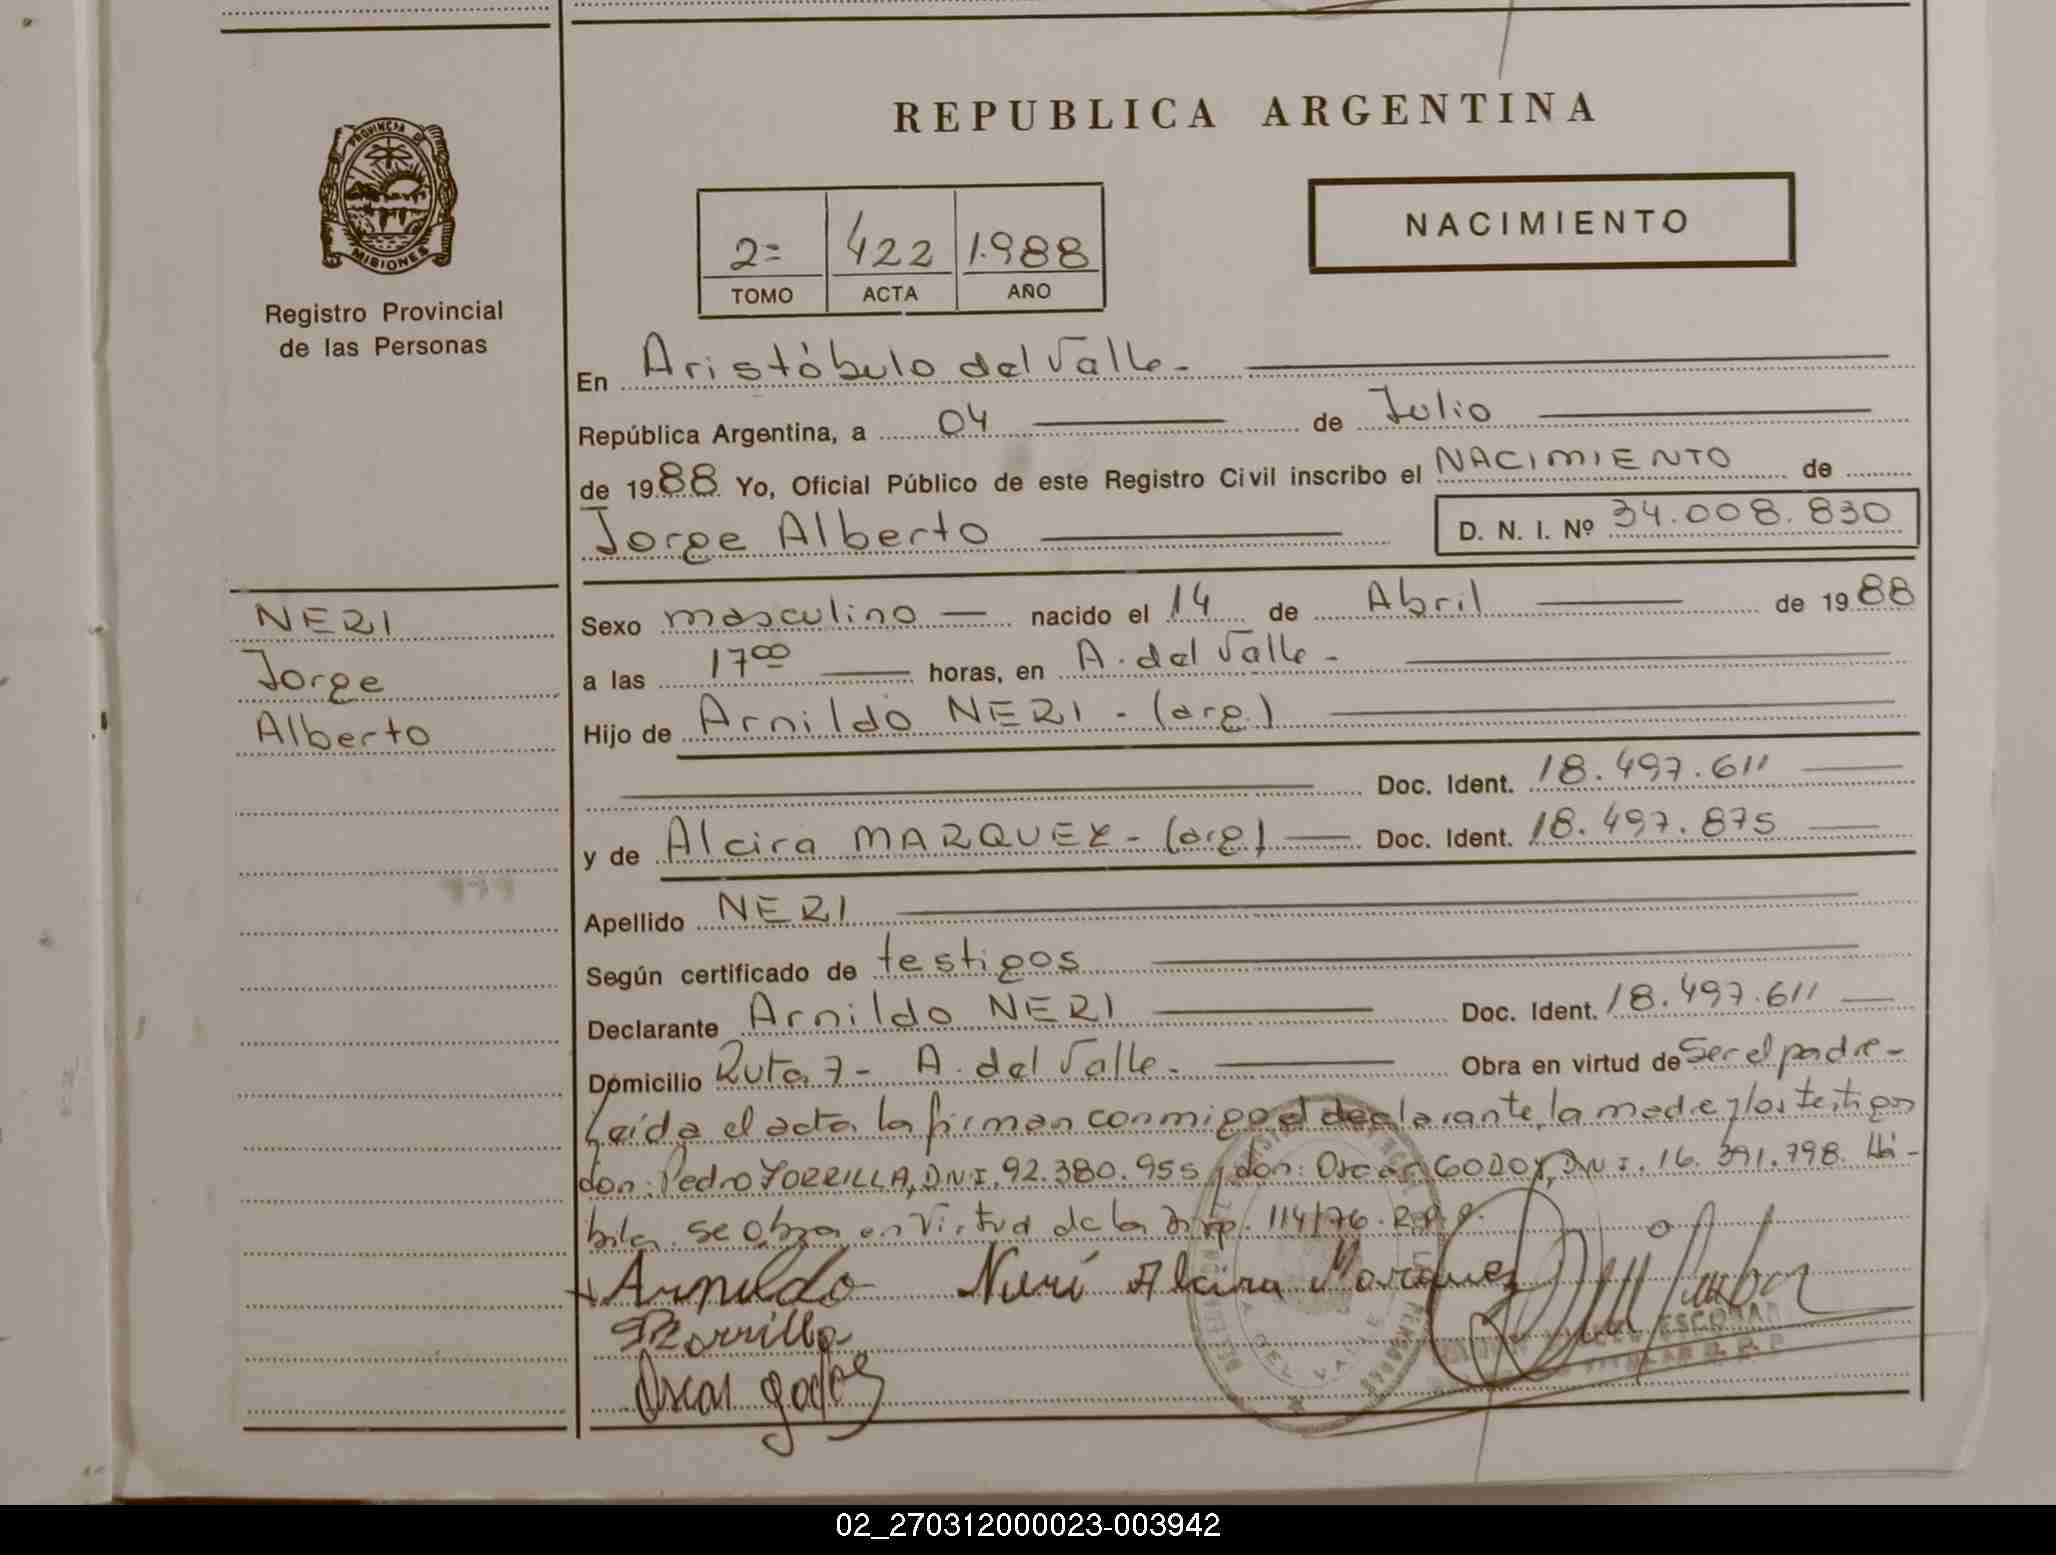 REPUBLICA ARGENTINA
PROVINCIA DE
MISIONES
Registro Provincial
de las Personas
2=
422
1.988
TOMO
ACTA
AÑO
NACIMIENTO
En Aristóbulo del Valle -
República Argentina, a 04 de Julio
de 1988 Yo, Oficial Público de este Registro Civil inscribo el NACIMIENTO de
Jorge Alberto D. N. I. Nº 34.008.830
NERI
Jorge
Alberto
Sexo masculino nacido el 14 de Abril de 1988
a las 17⁰⁰ horas, en A. del Valle -
Hijo de Arnildo NERI - (arg.)
Doc. Ident. 18.497.611
y de Alcira MARQUEZ - (arg) Doc. Ident. 18.497.875
Apellido NERI
Según certificado de testigos
Declarante Arnildo NERI Doc. Ident. 18.497.611
Domicilio Ruta 7 - A. del Valle - Obra en virtud de Ser el padre -
Leída el acta la firman conmigo el declarante, la madre y los testigos
don: Pedro ZORRILLA, D.N.I. 92.380.955 y don: Oscar GODOY, D.N.I. 16.391.798. Há-
bil. se obra en Virtud de la Disp. 114/76. R.P.P.
Arnildo Neri Alcira Marquez
Zorrilla
Oscar godoy
ESCOBAR
DEL VALLE
02_270312000023-003942